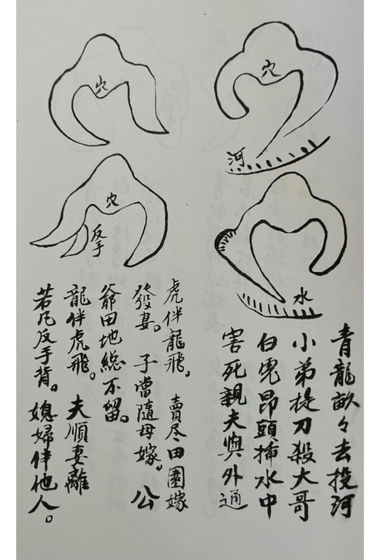 穴
河
水
穴
穴
反手
青龍畝々去投河
小弟提刀殺大哥
白虎昂頭揷水中
害死親夫與外通
虎伴龍飛。賣尽田園嫁
發妻。子當隨母嫁。公
爺田地総不留。
龍伴虎飛。夫順妻離
若凡反手背。媳婦伴他人。